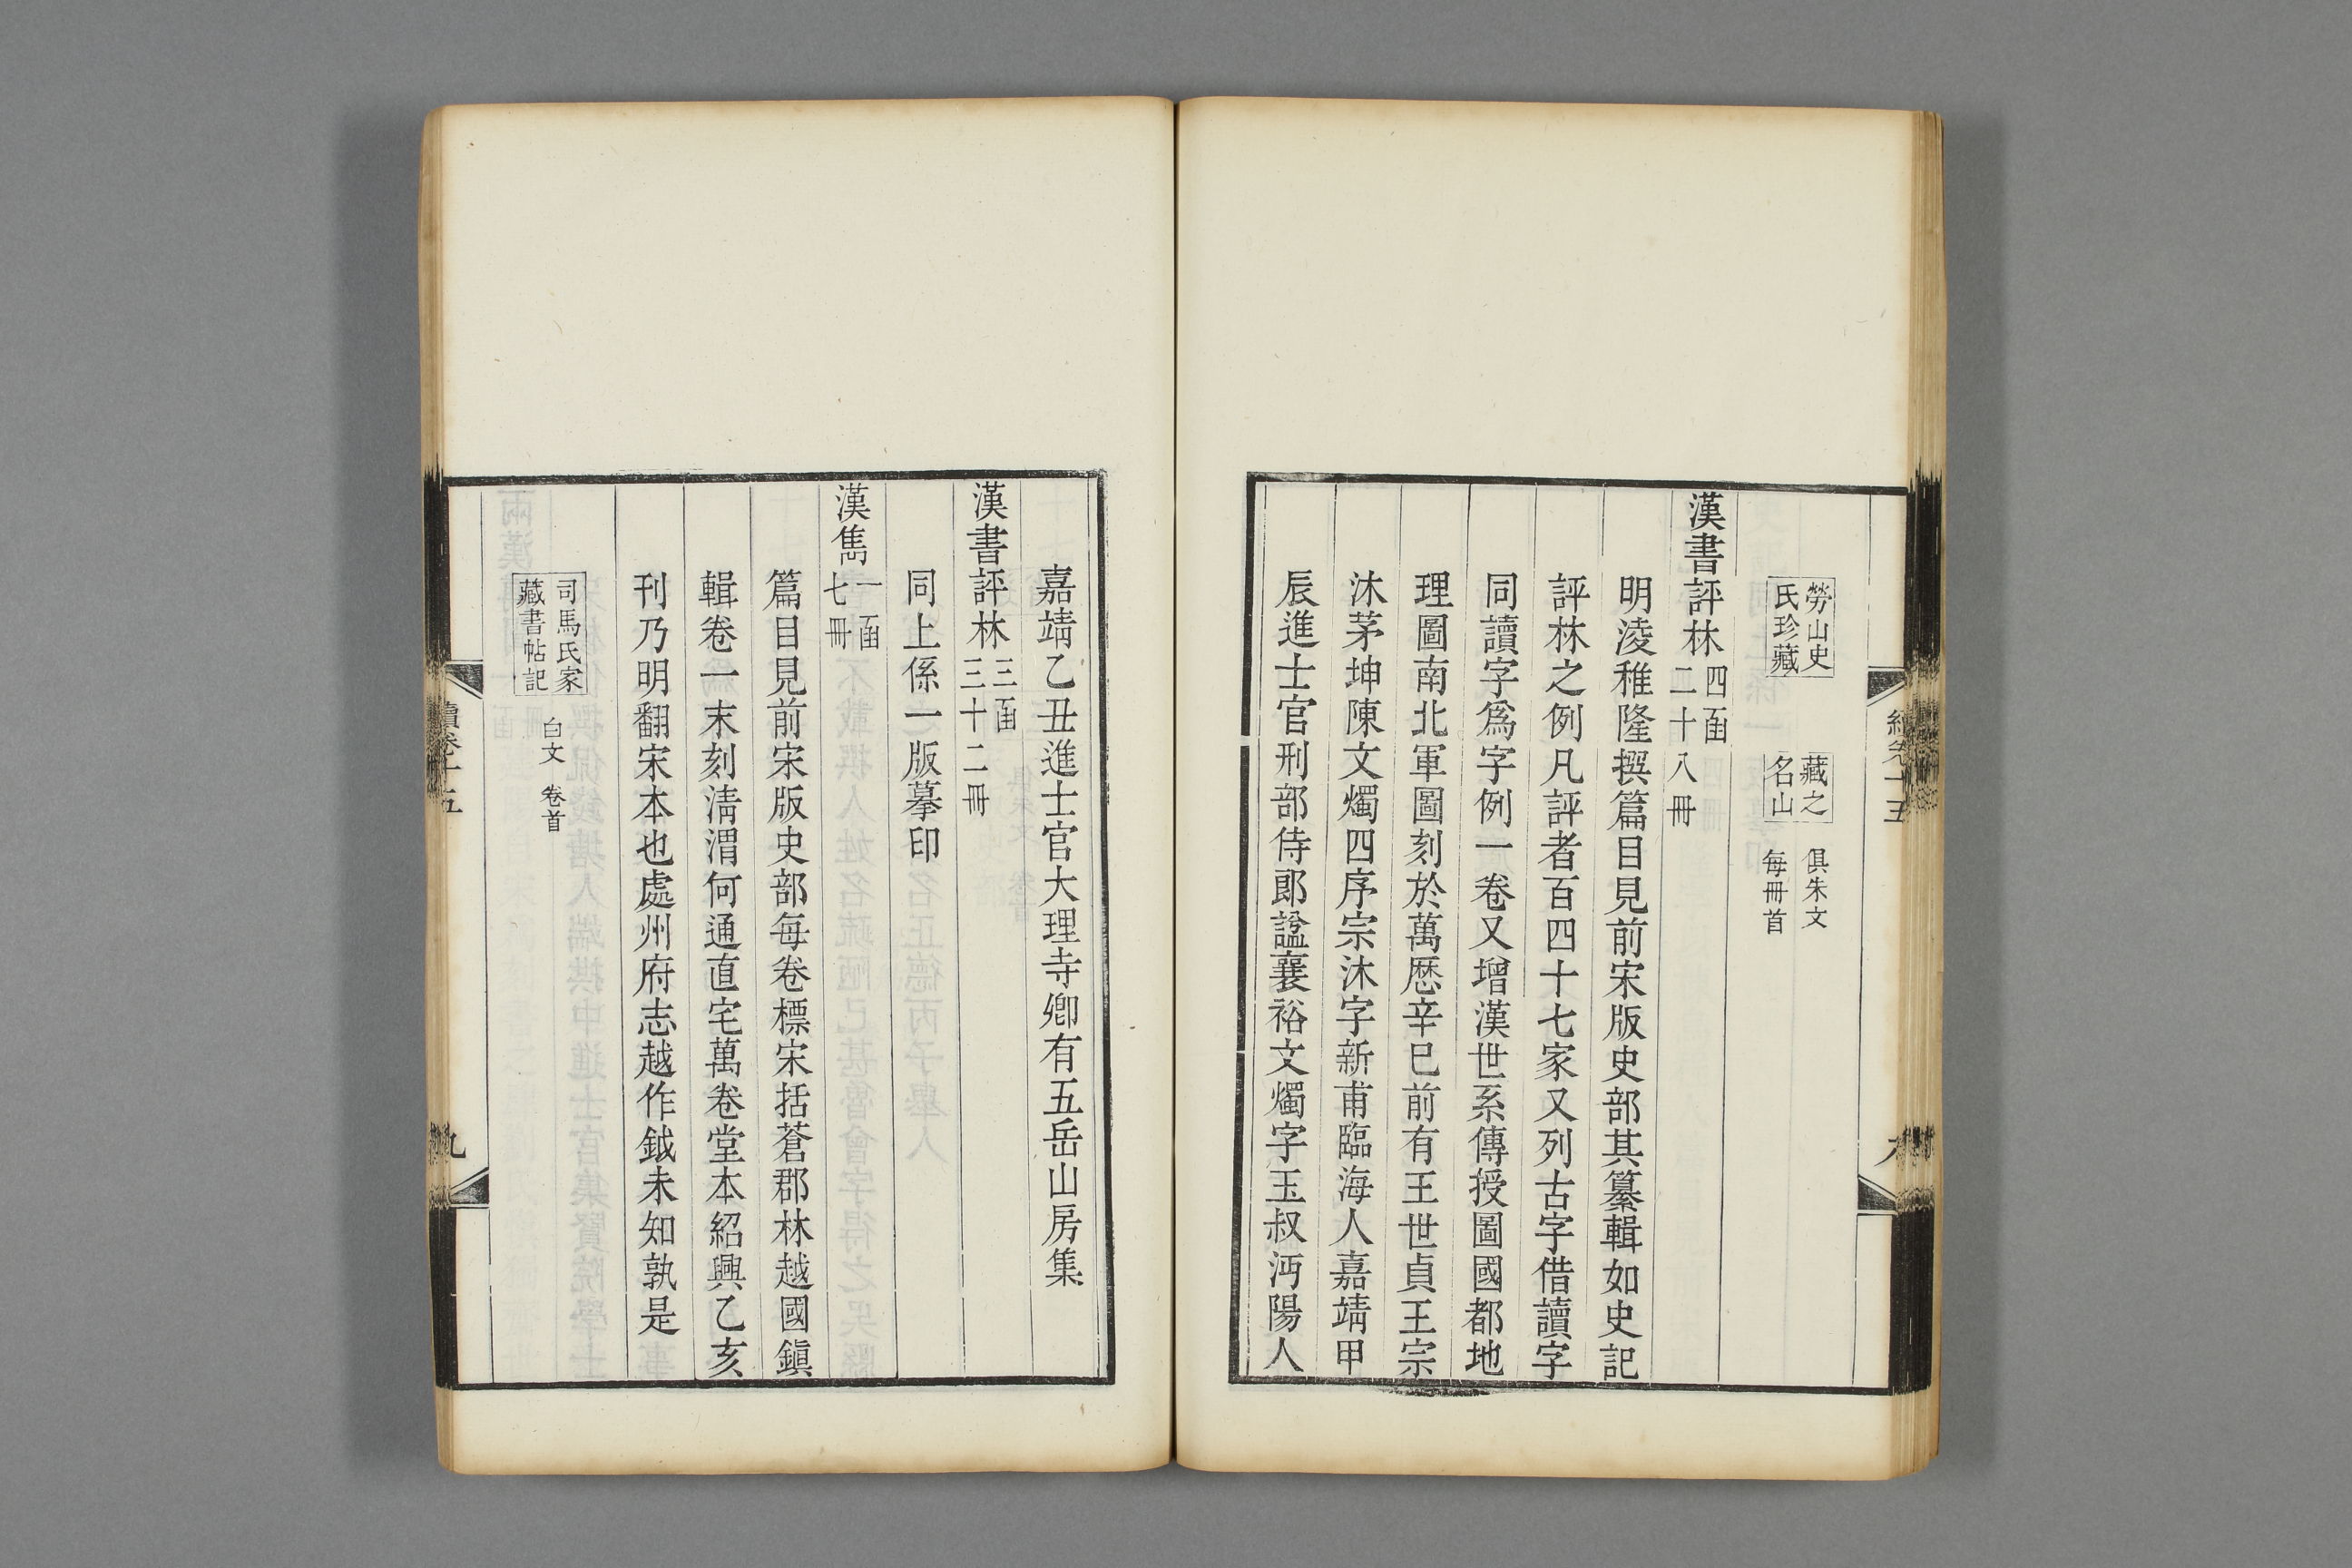 勞山史
氏珍藏
藏之
名山
俱朱文
每冊首
漢書評林四函
二十八冊
明淩稚隆撰篇目見前宋版史部其纂輯如史記
評林之例凡評者百四十七家又列古字借讀字
同讀字爲字例一卷又增漢世系傳授圖國都地
理圖南北軍圖刻於萬厯辛巳前有王世貞王宗
沐茅坤陳文燭四序宗沐字新甫臨海人嘉靖甲
辰進士官刑部侍郎諡襄裕文燭字玉叔沔陽人
嘉靖乙丑進士官大理寺卿有五岳山房集
漢書評林三函
三十二冊
同上係一版摹印
漢雋一函
七冊
篇目見前宋版史部每卷標宋括蒼郡林越國鎭
輯卷一末刻淸渭何通直宅萬卷堂本紹興乙亥
刊乃明翻宋本也處州府志越作鉞未知孰是
司馬氏家
藏書帖記
白文
卷首
續卷十五
九